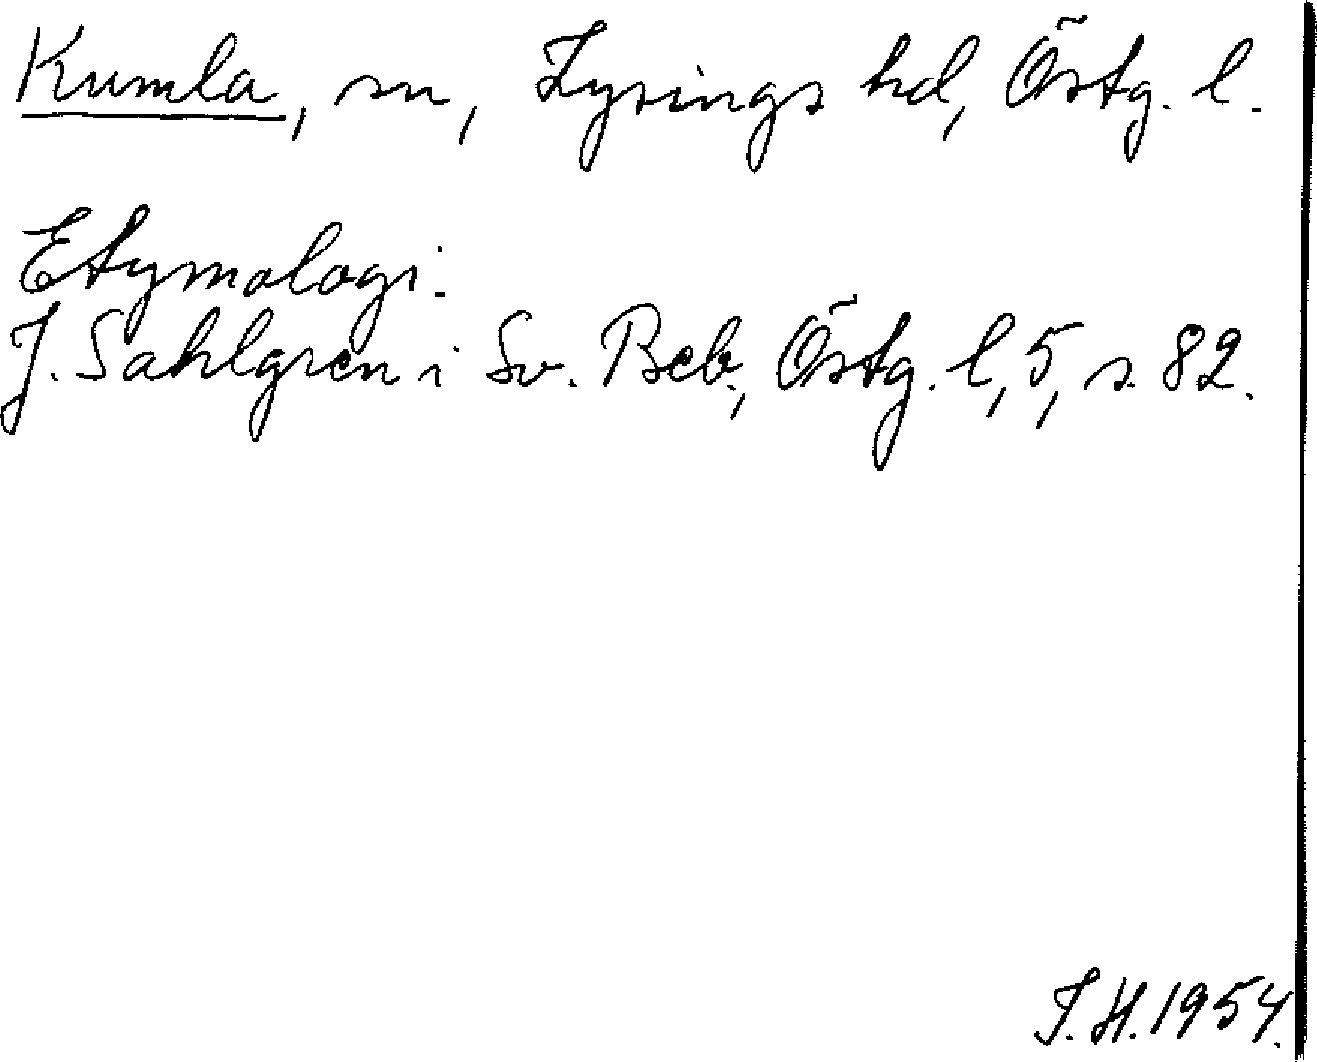 Kumla, sn, Lysings hd, Östg. l.
Etymologi.
J. Sahlgren i Sv. Beb., Östg. l, 5, s. 82.
J.H. 1954.